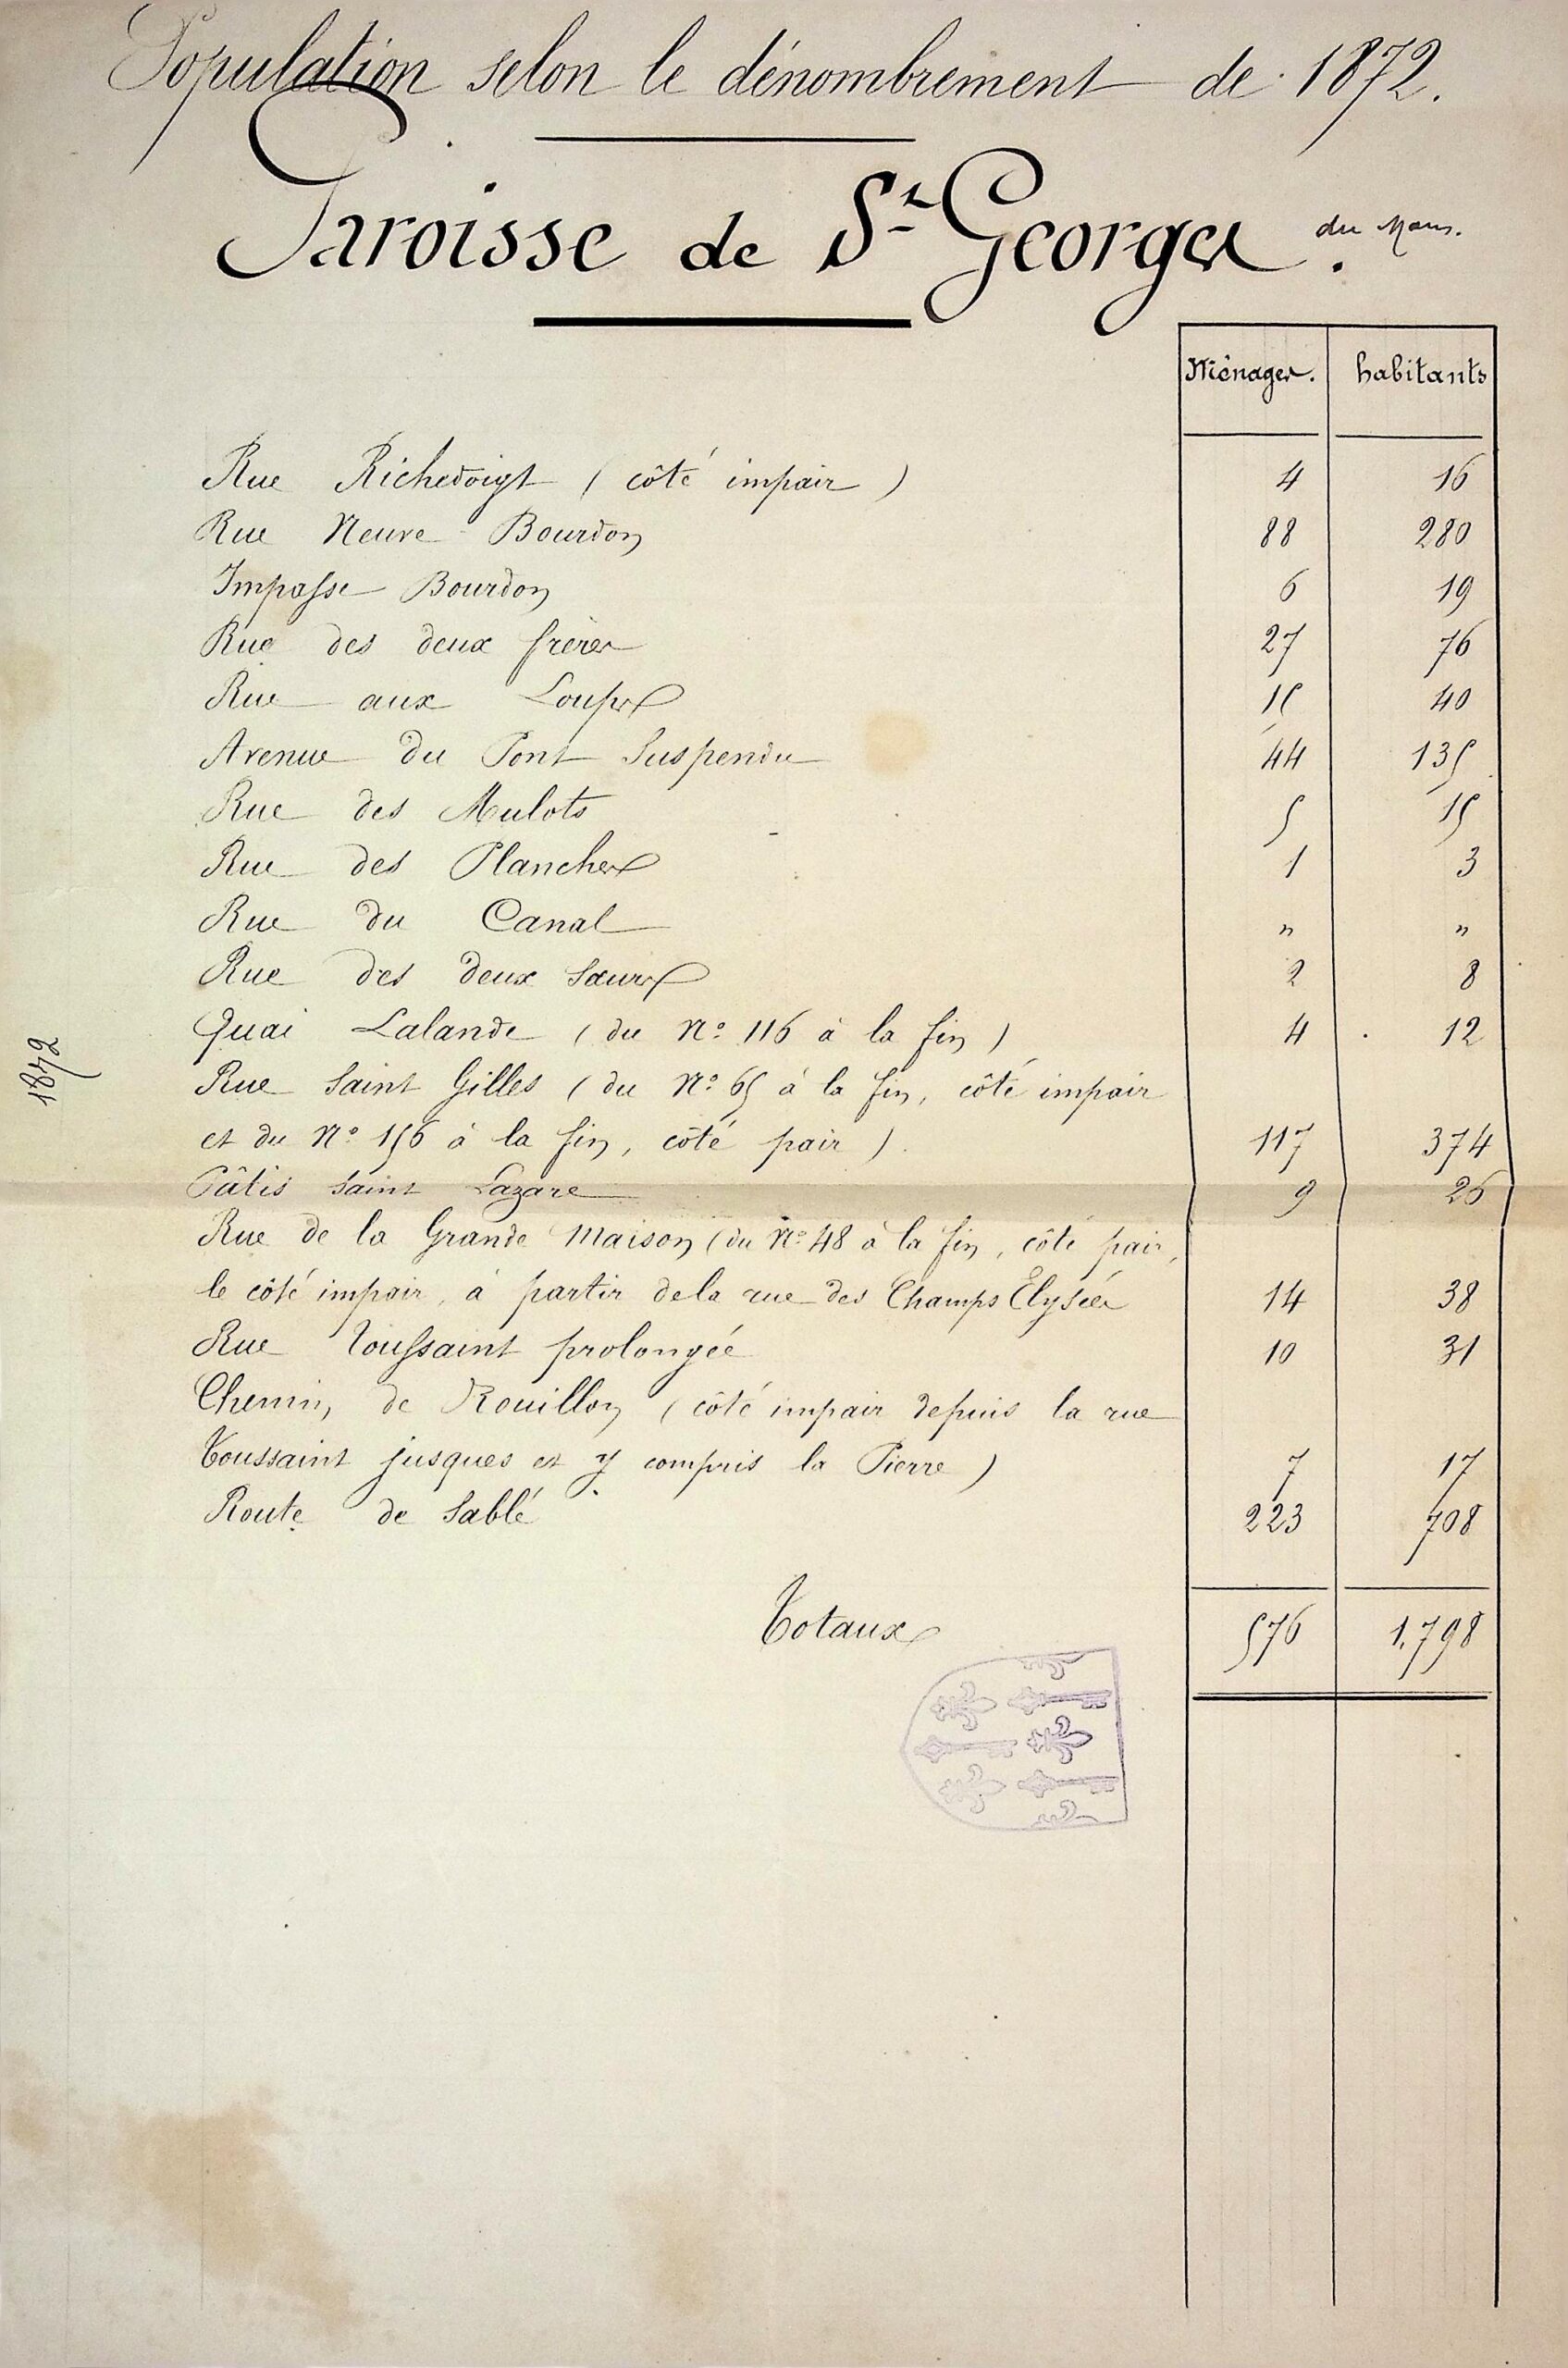 Population selon le dénombrement de 1872.
Paroisse de St Georges du Mans.
Ménages. habitants
Rue Richedoigt (côté impair) 4 16
Rue Neuve Bourdon 88 280
Impasse Bourdon 6 19
Rue des deux frères 27 76
Rue aux Loups 15 40
Avenue du Pont Suspendu 44 135
Rue des Mulots 5 15
Rue des Planches 1 3
Rue du Canal " "
Rue des deux Sœurs 2 8
Quai Lalande (du No 116 à la fin) 4 12
Rue Saint Gilles (du No 65 à la fin, côté impair
et du No 156 à la fin, côté pair). 117 374
Pâtis Saint Lazare 9 26
Rue de la Grande Maison (du No 48 à la fin, côté pair,
le côté impair, à partir de la rue des Champs Elysées 14 38
Rue Toussaint prolongée 10 31
Chemin de Rouillon (côté impair depuis la rue
Toussaint jusques et y compris la Pierre) 7 17
Route de Sablé 223 708
Totaux 576 1,798
1872